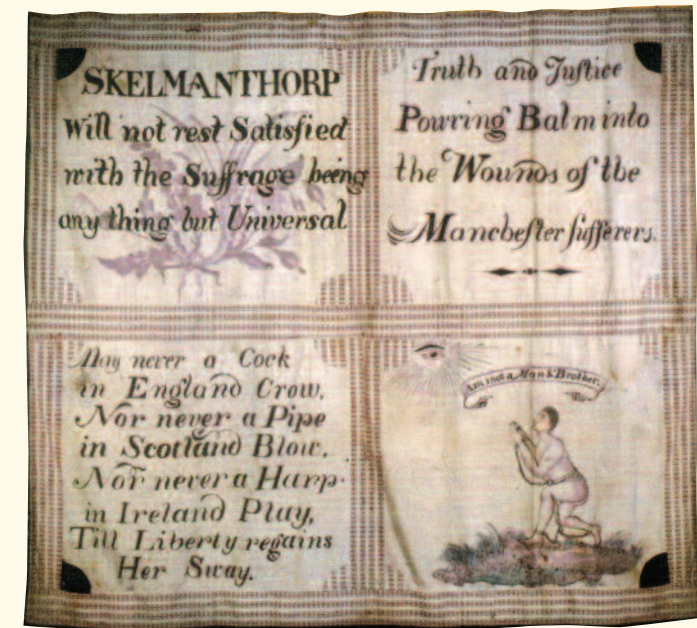 SKELMANTHORP
Will not rest Satisfied
with the Suffrage being
any thing but Universal
Truth and Justice
Powring Balm into
the Wounds of the
Manchester sufferers.
May never a Cock
in England Crow,
Nor never a Pipe
in Scotland Blow,
Nor never a Harp
in Ireland Play,
Till Liberty regains
Her Sway.
Am I not a Man & Brother.